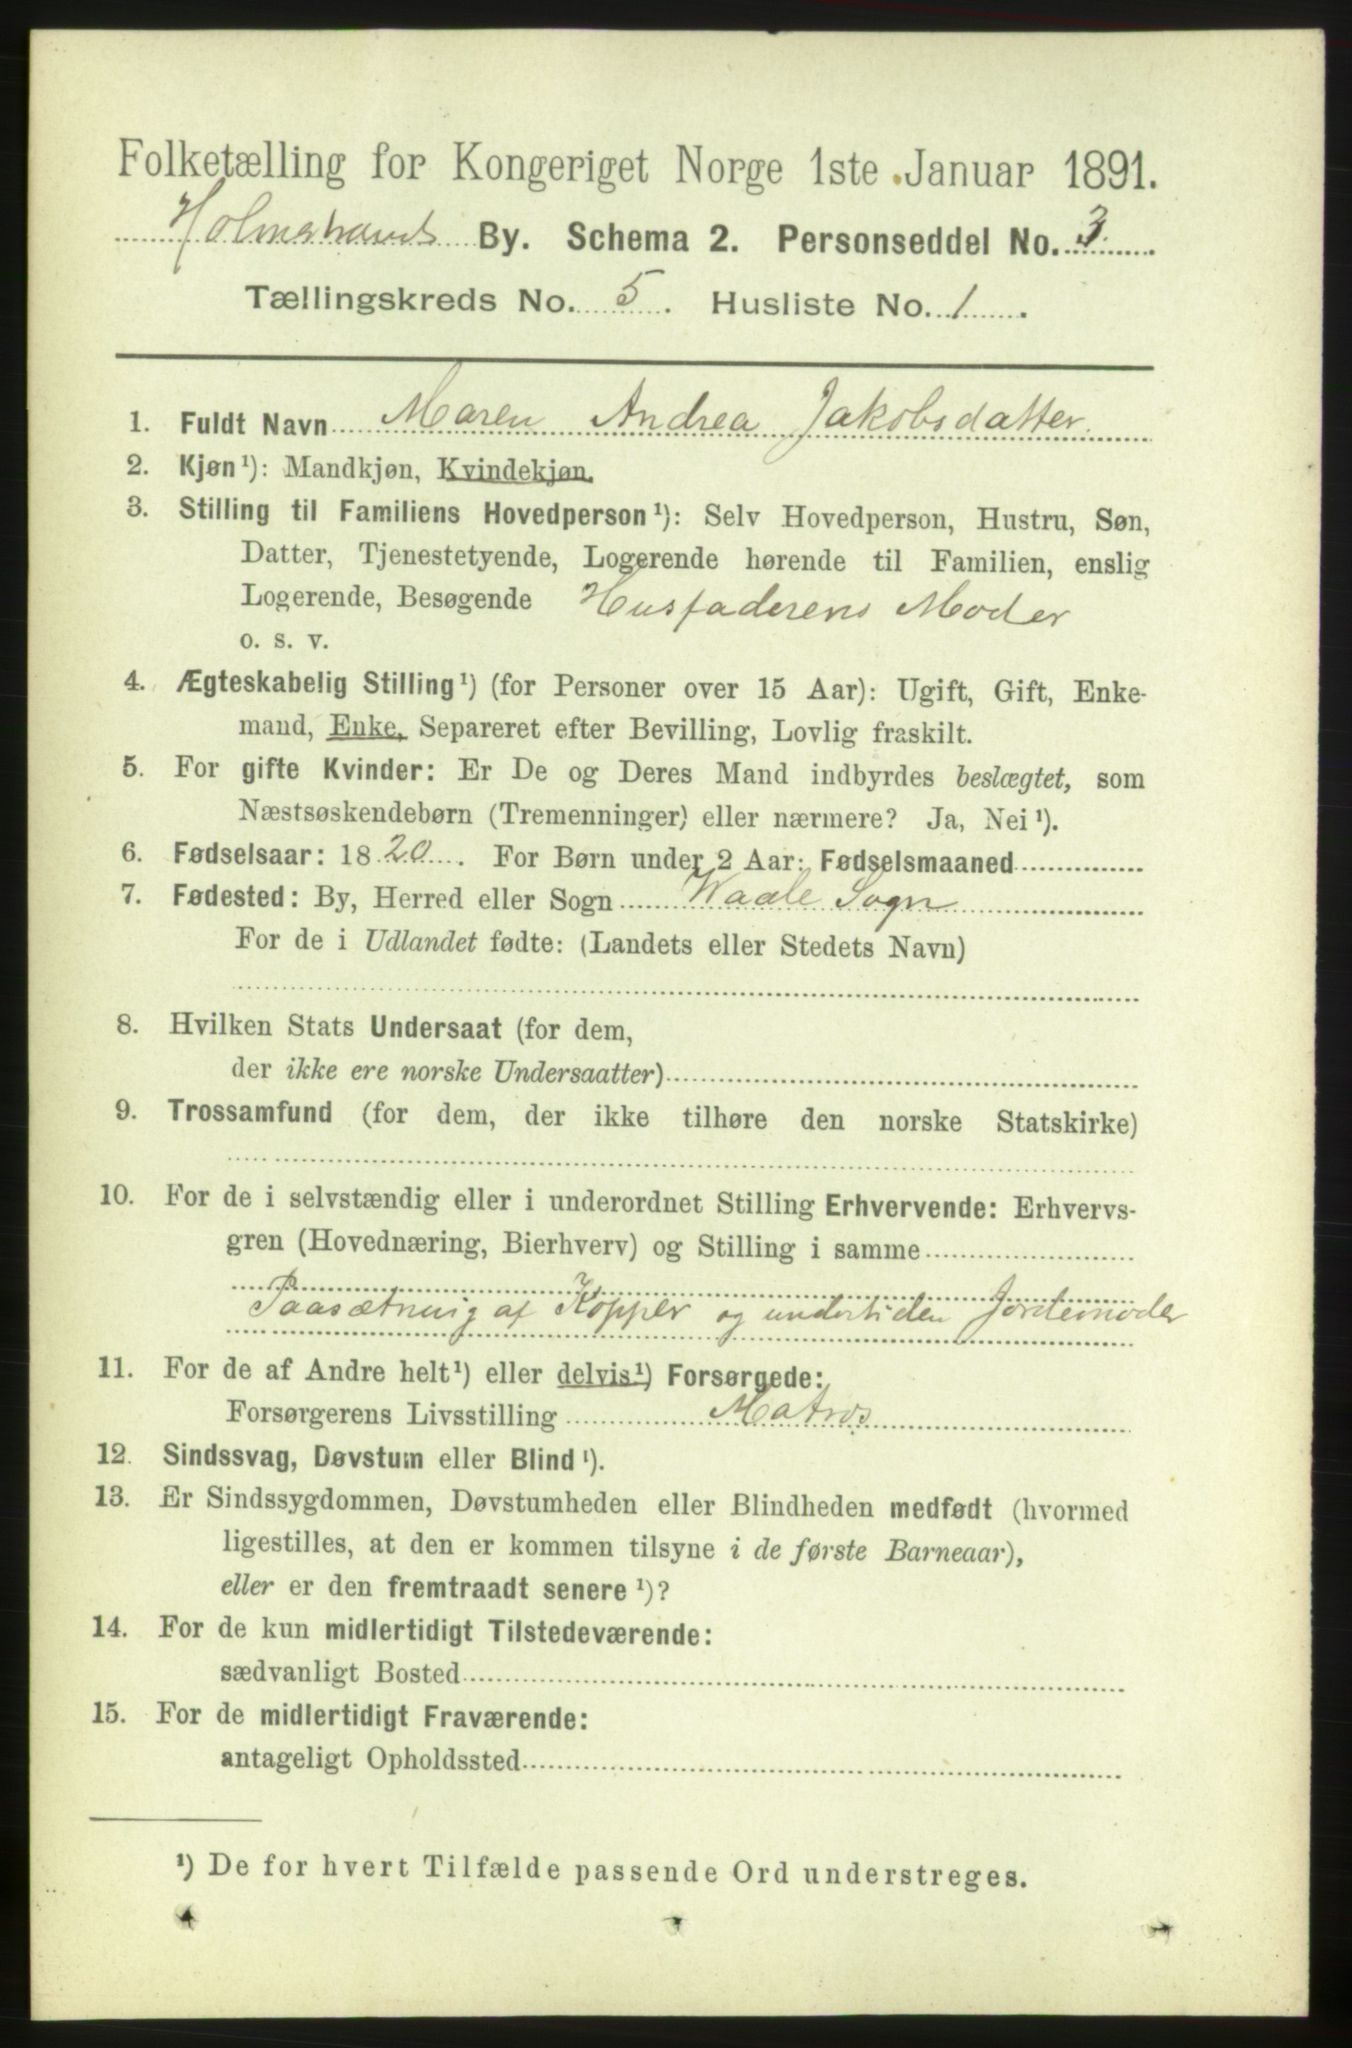 Folketælling for Kongeriget Norge 1ste Januar 1891.
Holmestrands By. Schema 2. Personseddel No. 3.
Tællingskreds No. 5. Husliste No. 1.
1. Fuldt Navn Maren Andrea Jakobsdatter.
2. Kjøn¹): Mandkjøn, Kvindekjøn.
3. Stilling til Familiens Hovedperson¹): Selv Hovedperson, Hustru, Søn,
Datter, Tjenestetyende, Logerende hørende til Familien, enslig
Logerende, Besøgende Husfaderens Moder
o. s. v.
4. Ægteskabelig Stilling¹) (for Personer over 15 Aar): Ugift, Gift, Enke-
mand, Enke, Separeret efter Bevilling, Lovlig fraskilt.
5. For gifte Kvinder: Er De og Deres Mand indbyrdes beslægtet, som
Næstsøskendebørn (Tremenninger) eller nærmere? Ja, Nei¹).
6. Fødselsaar: 1820. For Børn under 2 Aar: Fødselsmaaned
7. Fødested: By, Herred eller Sogn Waale Sogn
For de i Udlandet fødte: (Landets eller Stedets Navn)
8. Hvilken Stats Undersaat (for dem,
der ikke ere norske Undersaatter)
9. Trossamfund (for dem, der ikke tilhøre den norske Statskirke)
10. For de i selvstændig eller i underordnet Stilling Erhvervende: Erhvervs-
gren (Hovednæring, Bierhverv) og Stilling i samme
Paasætning af Kopper og undertiden Jordemoder
11. For de af Andre helt¹) eller delvis¹) Forsørgede:
Forsørgerens Livsstilling Matros
12. Sindssvag, Døvstum eller Blind¹).
13. Er Sindssygdommen, Døvstumheden eller Blindheden medfødt (hvormed
ligestilles, at den er kommen tilsyne i de første Barneaar),
eller er den fremtraadt senere¹)?
14. For de kun midlertidigt Tilstedeværende:
sædvanligt Bosted
15. For de midlertidigt Fraværende:
antageligt Opholdssted
¹) De for hvert Tilfælde passende Ord understreges.